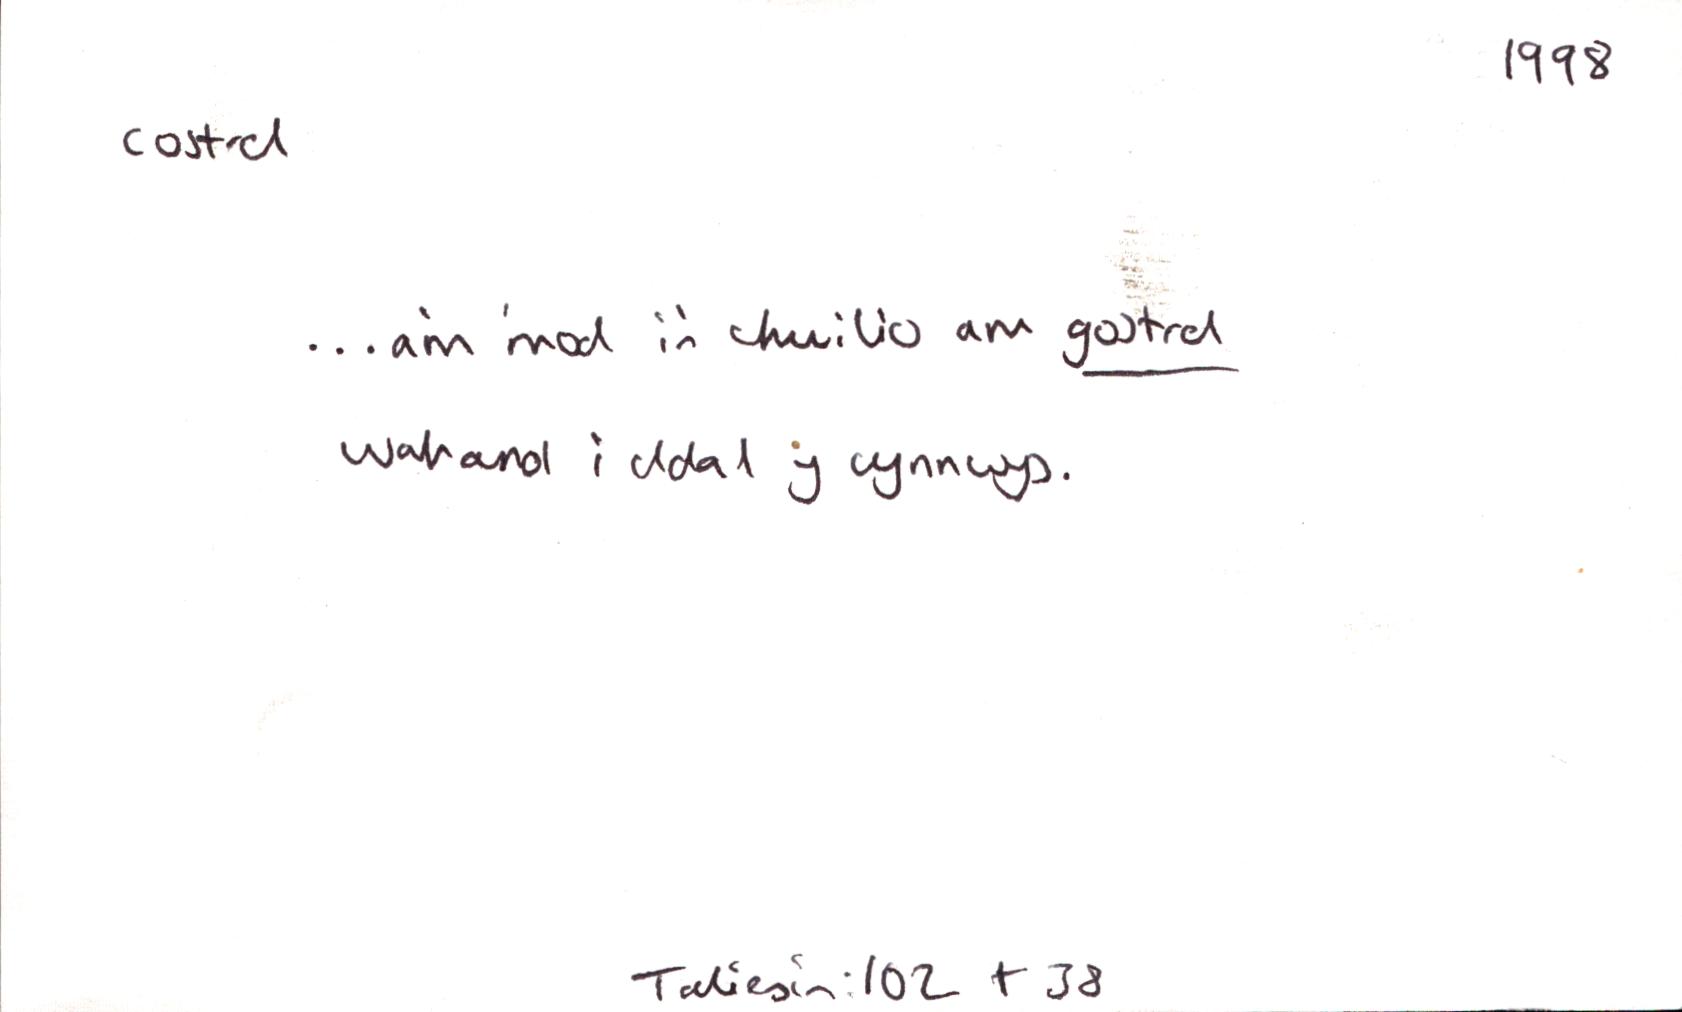 1998
costrel
...a'm 'mod i'n chwilio am gostrel
wahanol i ddal y cynnwys.
Taliesin: 102 t 38